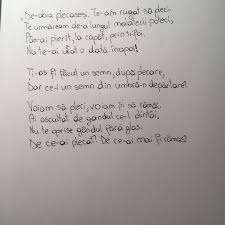 „De-abia plecaseși. Te-am rugat să pleci.
Te urmăream de-a lungul molatecii poteci,
Pân-ai pierit, la capăt, prin trifoi.
Nu te-ai uitat o dată înapoi!
Ți-aș fi făcut un semn, după plecare,
Dar ce-i un semn din umbră-n depărtare?
Voiam să pleci, voiam și să rămâi.
Ai ascultat de gândul cel dintâi.
Nu te oprise gândul fără glas.
De ce-ai plecat? De ce-ai mai fi rămas?